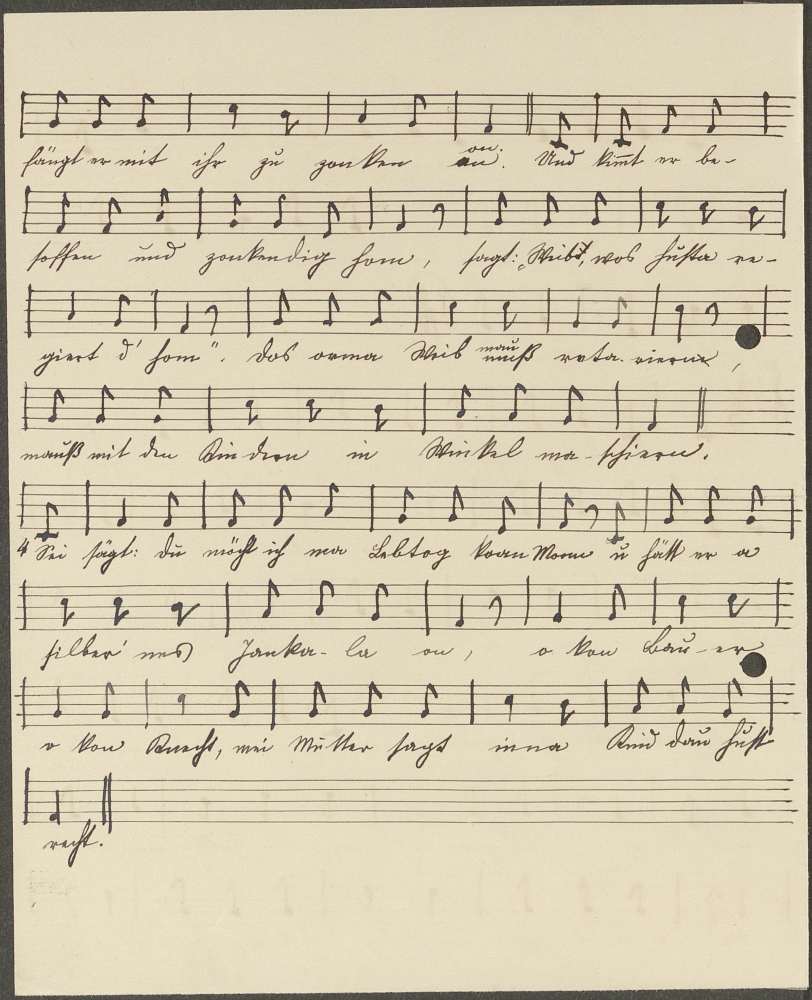 fängt er mit ihr zu zonken an. on. Und kimt er be-
soffen und zonkendig hom, sagt: „Weibst, wos husta re-
giert d' hom". Dos orma Weib muß mauß reta-rierna,
mauß mit den Kindern in Winkel ma-schiern.
4 Sei sägt: du möcht ich ma Lebtog koan Monn u hätt er a
silber'nes Janka-la on, o kon Bau-er
o kon Knecht, mei Mutter sagt inna Kind dau hust
recht.